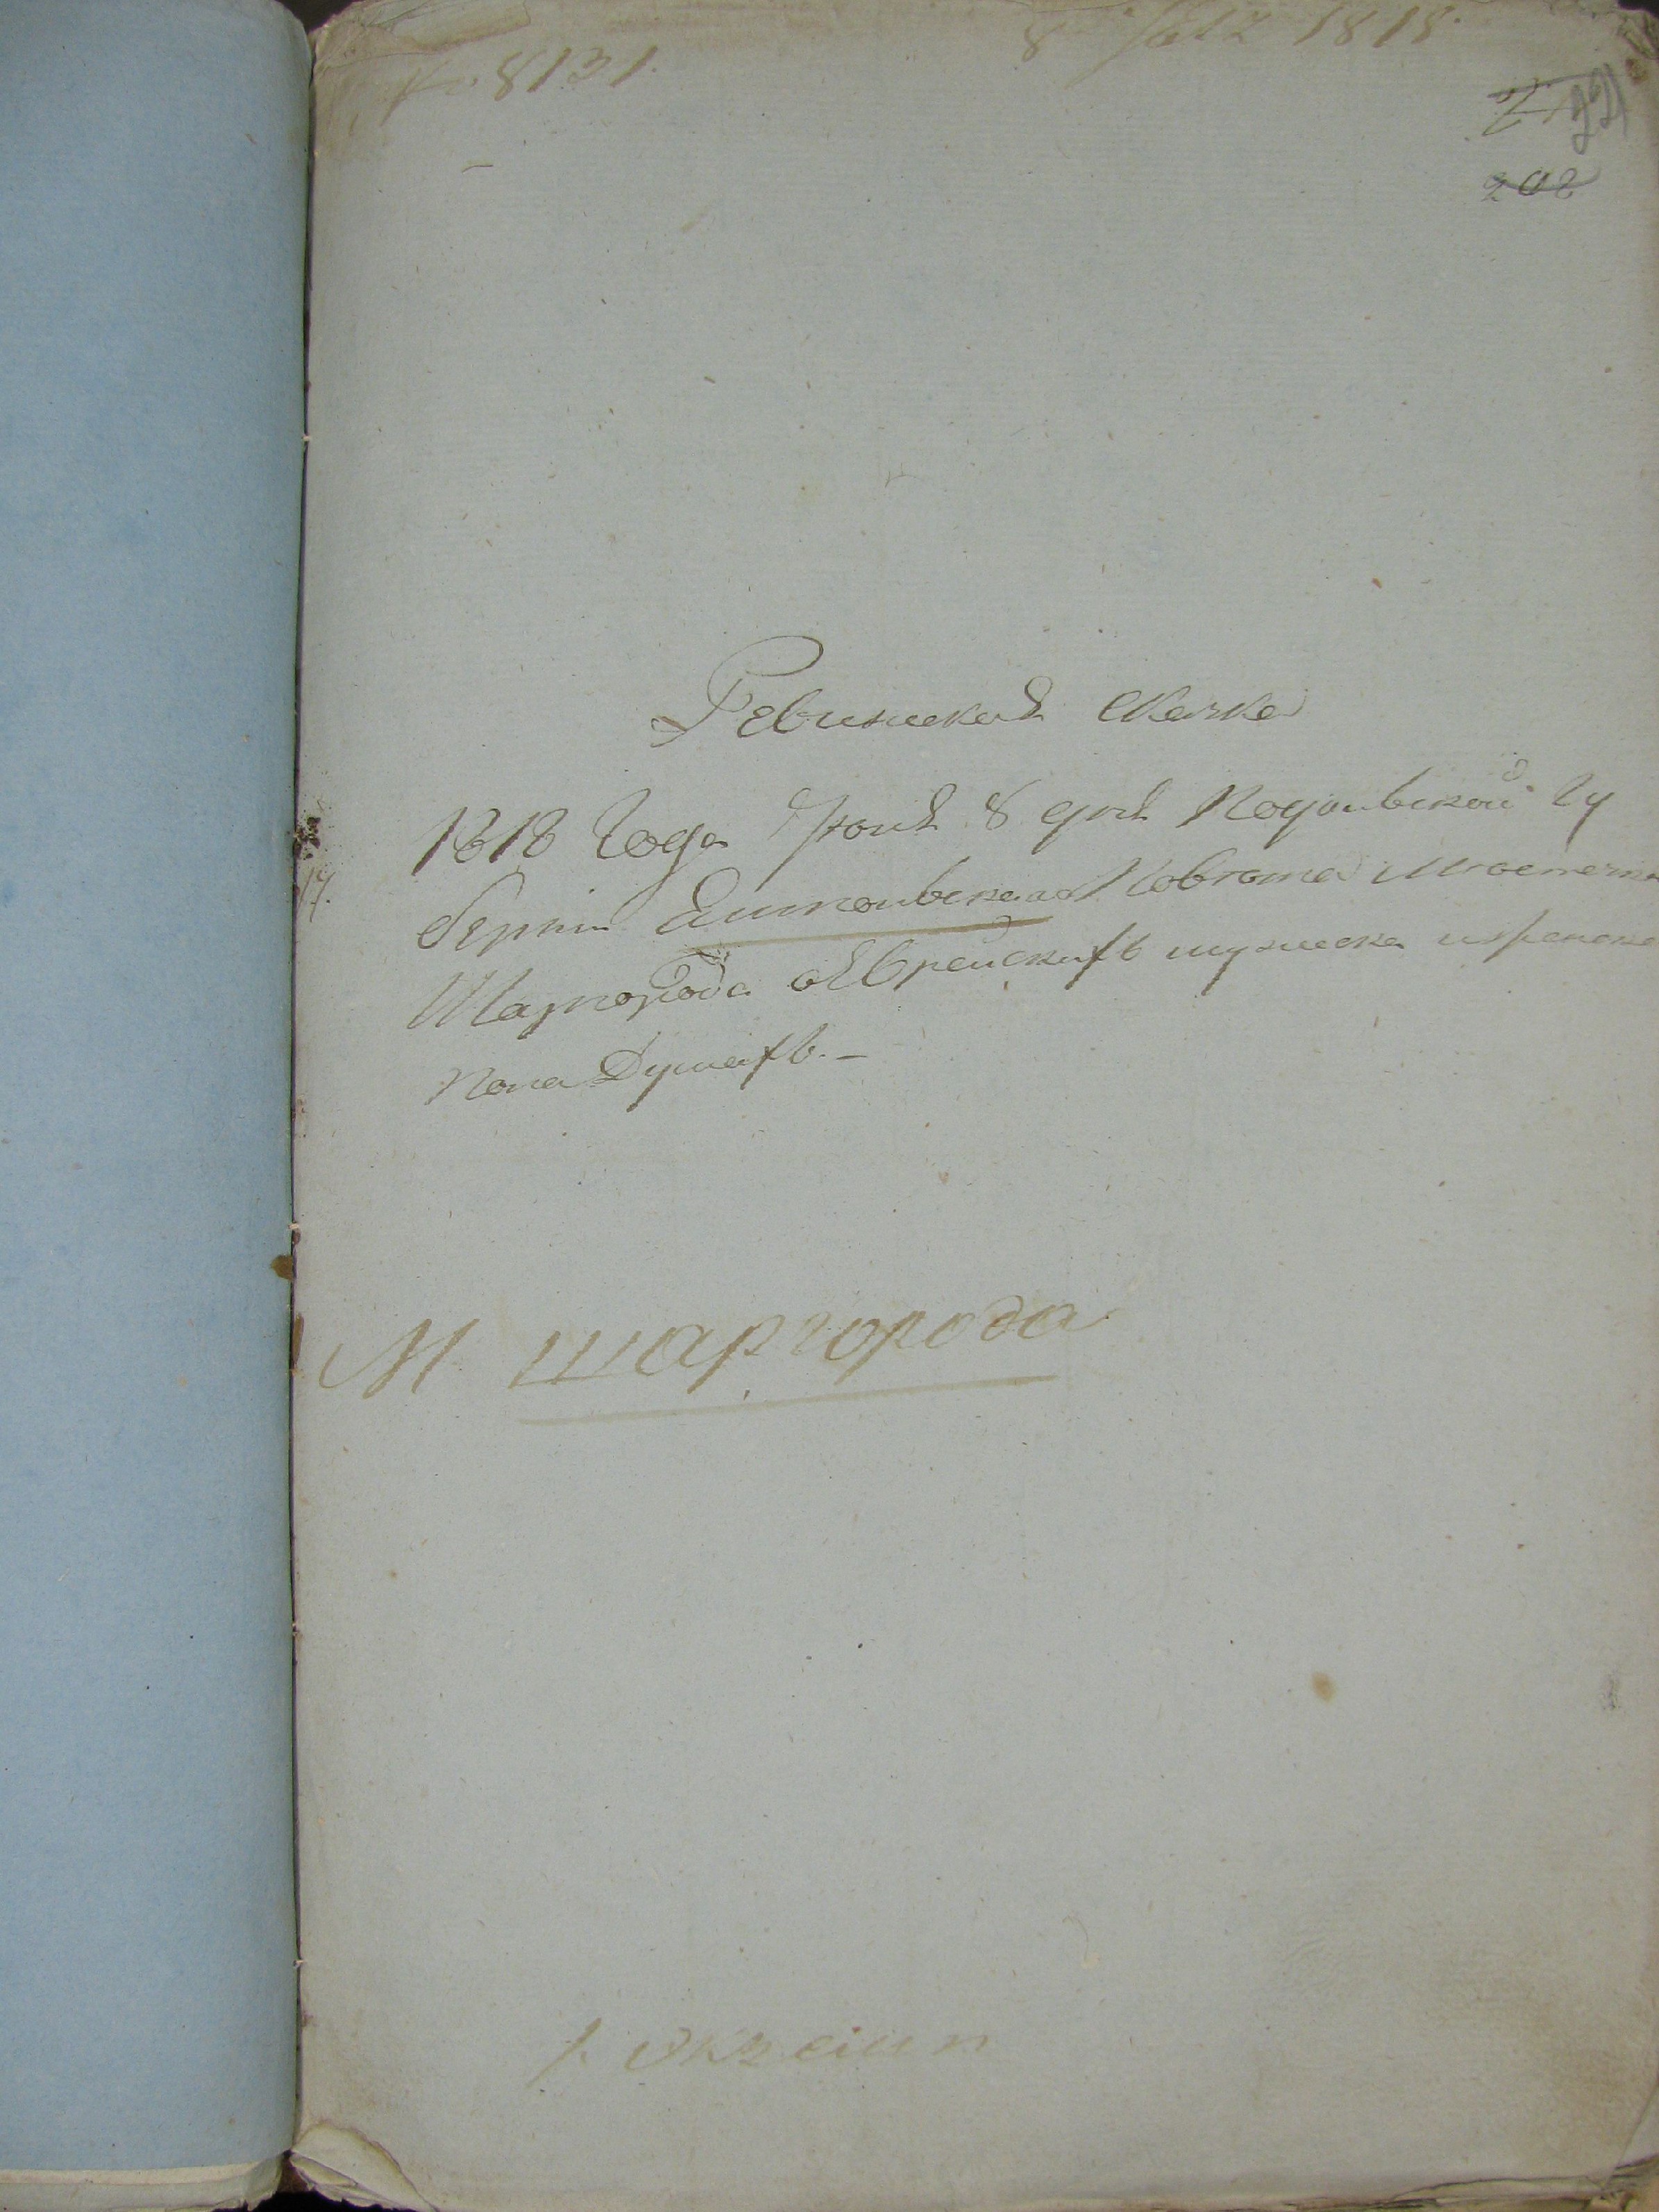 8131
8 1818
22
202
Ревижская скаска
1818 Года Июня 8 дня Подольской Гу
берніи Ямпольскаго Повѣта Местечка
Шаргорода о Еврейскихъ мужеска и женска
Пола Душахъ. —
М шаргорода